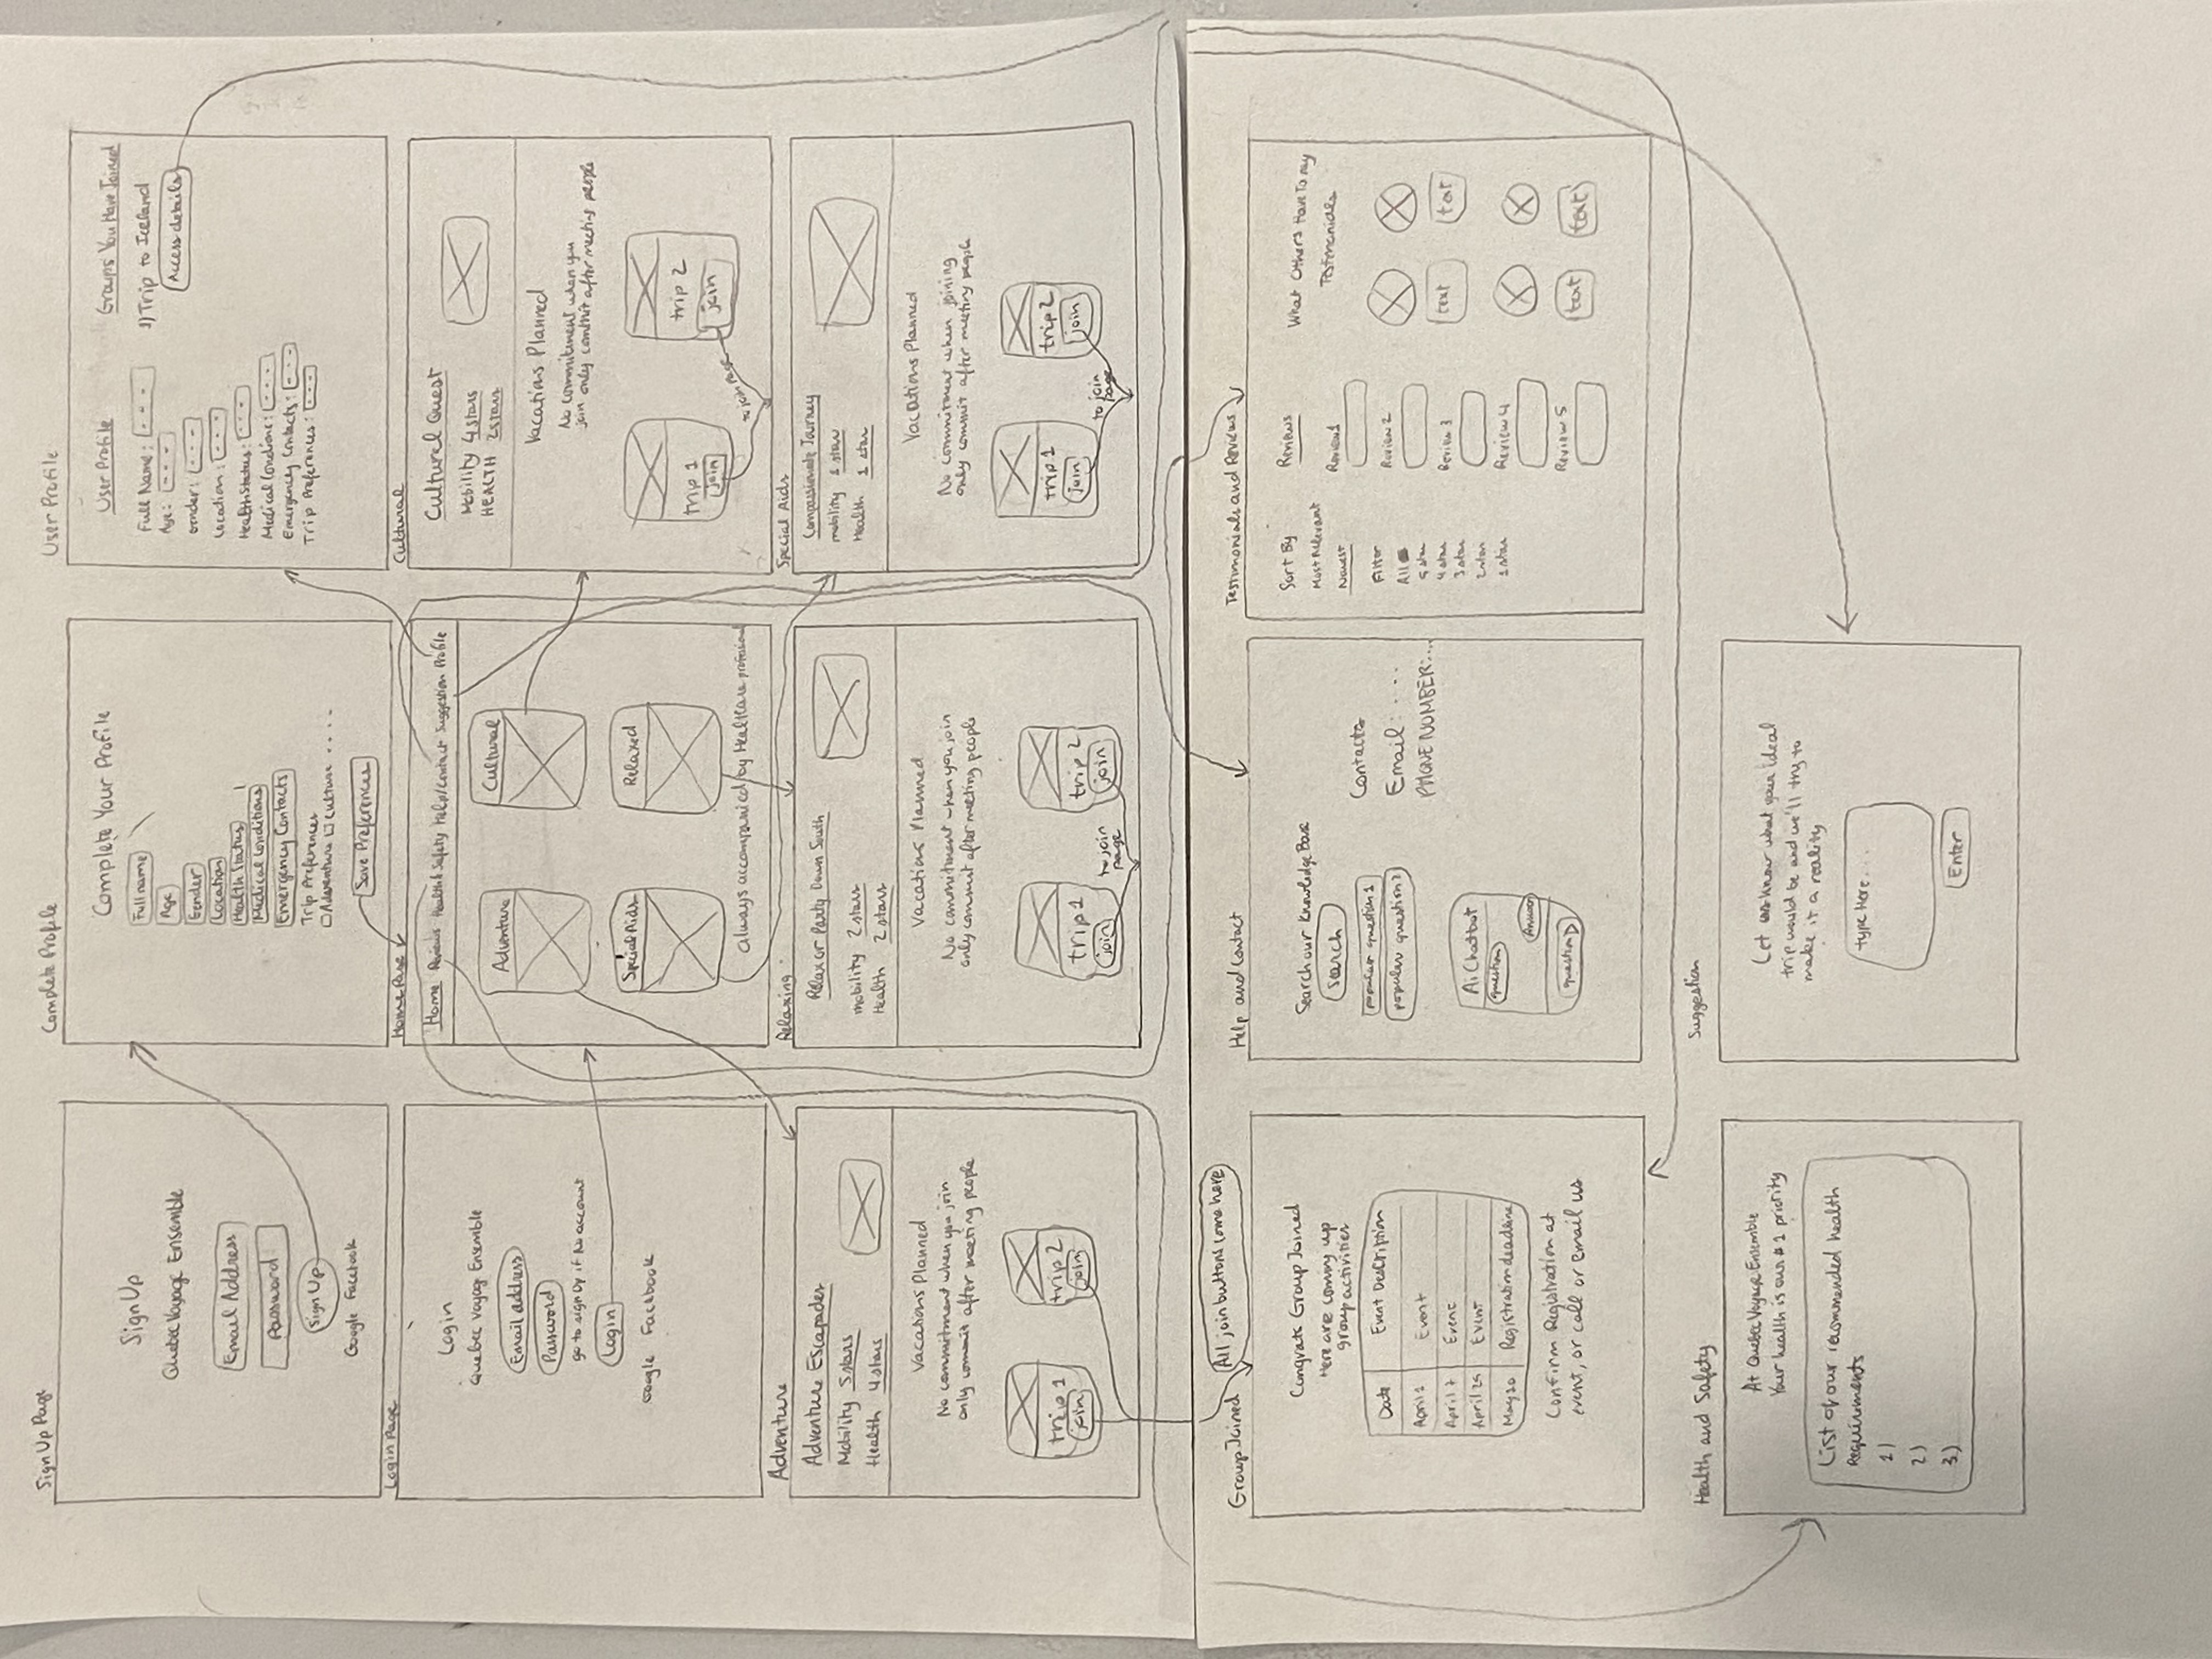 Sign Up Page
Sign Up
Quebec Voyage Ensemble
Email Address
Password
Sign Up
Google Facebook
Complete Profile
Complete Your Profile
Full name
Age
Gender
Location
Health Status
Medical Conditions
Emergency Contacts
Trip Preferences
Adventure Culture ....
Save Preferences
User Profile
User Profile
Full Name: - - -
Age: - - -
Gender: - - -
Location: - - -
Health Status: - - -
Medical Condions: - - -
Emergency Contacts: - - -
Trip Preferences: - - -
Groups You Have Joined
1) Trip to Iceland
Access details
Login Page
Login
Quebec Voyag Ensemble
Email address
Password
go to sign Up if No account
Login
Google Facebook
Home Page
Home Reviews Health & Safety Help/Contact Suggestion Profile
Adventure
Cultural
Special Aids
Relaxed
always accompanied by Healthcare professional
Cultural
Cultural Quest
Mobility 4 stars
HEALTH 2 stars
Vacations Planned
No commitment when you
join only commit after meeting people
trip 1
join
trip 2
join
to join page
Adventure
Adventure Escapades
Mobility 5 stars
Health 4 stars
Vacations Planned
No commitment when you join
only commit after meeting people
trip 1
join
trip 2
join
Relaxing
Relax or Party Down South
mobility 2 stars
Health 2 stars
Vacations Planned
No commitment when you join
only commit after meeting people
trip 1
join
trip 2
join
to join
page
Special Aids
Compassionate Journey
mobility 1 star
Health 1 star
Vacations Planned
No commitment when joining
only commit after meeting people
trip 1
join
trip 2
join
to join
page
Group Joined
All join buttons come here
Congrats Group Joined
Here are coming up
group activities
Date Event Description
April 1 Event
April 7 Event
April 29 Event
May 20 Registration deadline
Confirm Registration at
event, or call or email us
Help and Contact
Search our Knowledge Base
Search
popular question 1
popular question 2
Contacts
Email: ....
PHONE NUMBER:...
Ai Chatbot
question
Answer
question
Testimonials and Reviews
Sort By
Most Relevant
Newest
Filter
All
5 star
4 star
3 star
2 star
1 star
Reviews
Review 1
Review 2
Review 3
Review 4
Review 5
What Others Have To say
text
text
text
text
Health and Safety
At Quebec Voyage Ensemble
Your health is our #1 priority
List of our recommended health
Requirements
1)
2)
3)
Suggestion
Let us know what your ideal
trip would be and we'll try to
make it a reality
type Here...
Enter